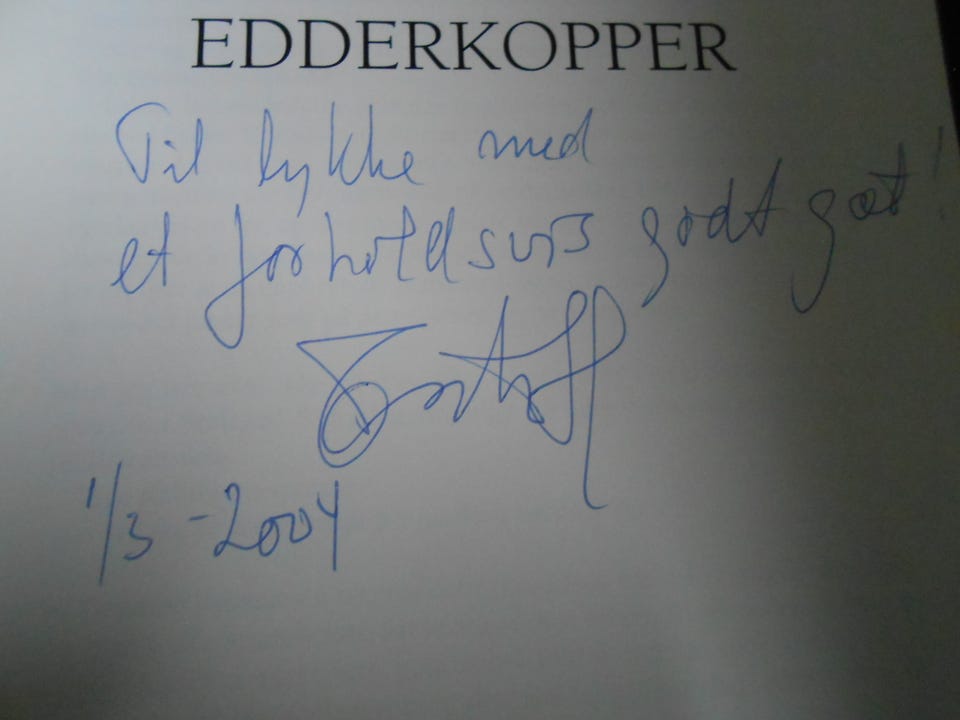 EDDERKOPPER
Til lykke med
et forholdsvis godt gæt!
1/3 -2004